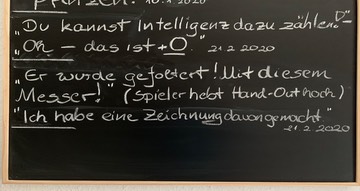 10.1.2020
„Du kannst Intelligenz dazu zählen."
„Oh – das ist +0." 21.2.2020
„Er wurde gefoltert! Mit diesem
Messer!" (Spieler hebt Hand-Out hoch)
"Ich habe eine Zeichnung davon gemacht"
21.2.2020